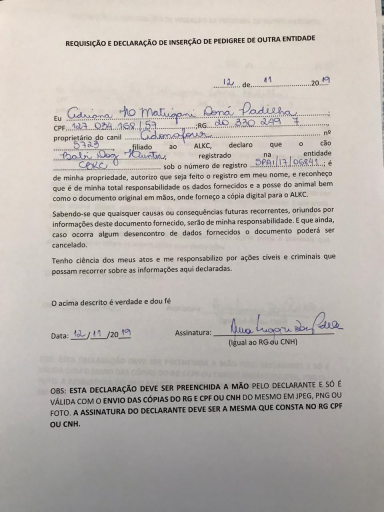 REQUISIÇÃO E DECLARAÇÃO DE INSERÇÃO DE PEDIGREE DE OUTRA ENTIDADE
12 de 11 2019
Eu Adriana No Matugani Doná Padelha ;
CPF 127 034 168 / 57 ;RG 20 330 249 7 ;
proprietário do canil nº
5723 filiado ao ALKC, declaro que o cão
Bali Dog , registrado na entidade
CPKC sob o número de registro SPAI/17/06841 ; é
de minha propriedade, autorizo que seja feito o registro em meu nome, e reconheço
que é de minha total responsabilidade os dados fornecidos e a posse do animal bem
como o documento original em mãos, onde forneço a cópia digital para o ALKC.
Sabendo-se que quaisquer causas ou consequências futuras recorrentes, oriundos por
informações deste documento fornecido, serão de minha responsabilidade. E que ainda,
caso ocorra algum desencontro de dados fornecidos o documento poderá ser
cancelado.
Tenho ciência dos meus atos e me responsabilizo por ações cíveis e criminais que
possam recorrer sobre as informações aqui declaradas.
O acima descrito é verdade e dou fé
Data: 12 / 11 /2019 Assinatura:
(Igual ao RG ou CNH)
OBS: ESTA DECLARAÇÃO DEVE SER PREENCHIDA A MÃO PELO DECLARANTE E SÓ É
VÁLIDA COM O ENVIO DAS CÓPIAS DO RG E CPF OU CNH DO MESMO EM JPEG, PNG OU
FOTO. A ASSINATURA DO DECLARANTE DEVE SER A MESMA QUE CONSTA NO RG CPF
OU CNH.